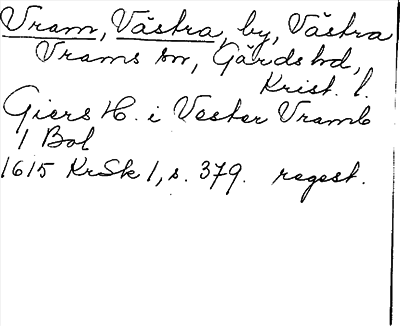 Vram, Västra, by, Västra
Vrams sn, Gärds hd,
Krist. l.
Giers H. i Vester Vramb
1 Bol
1615 KrSk 1, s. 379. regest.